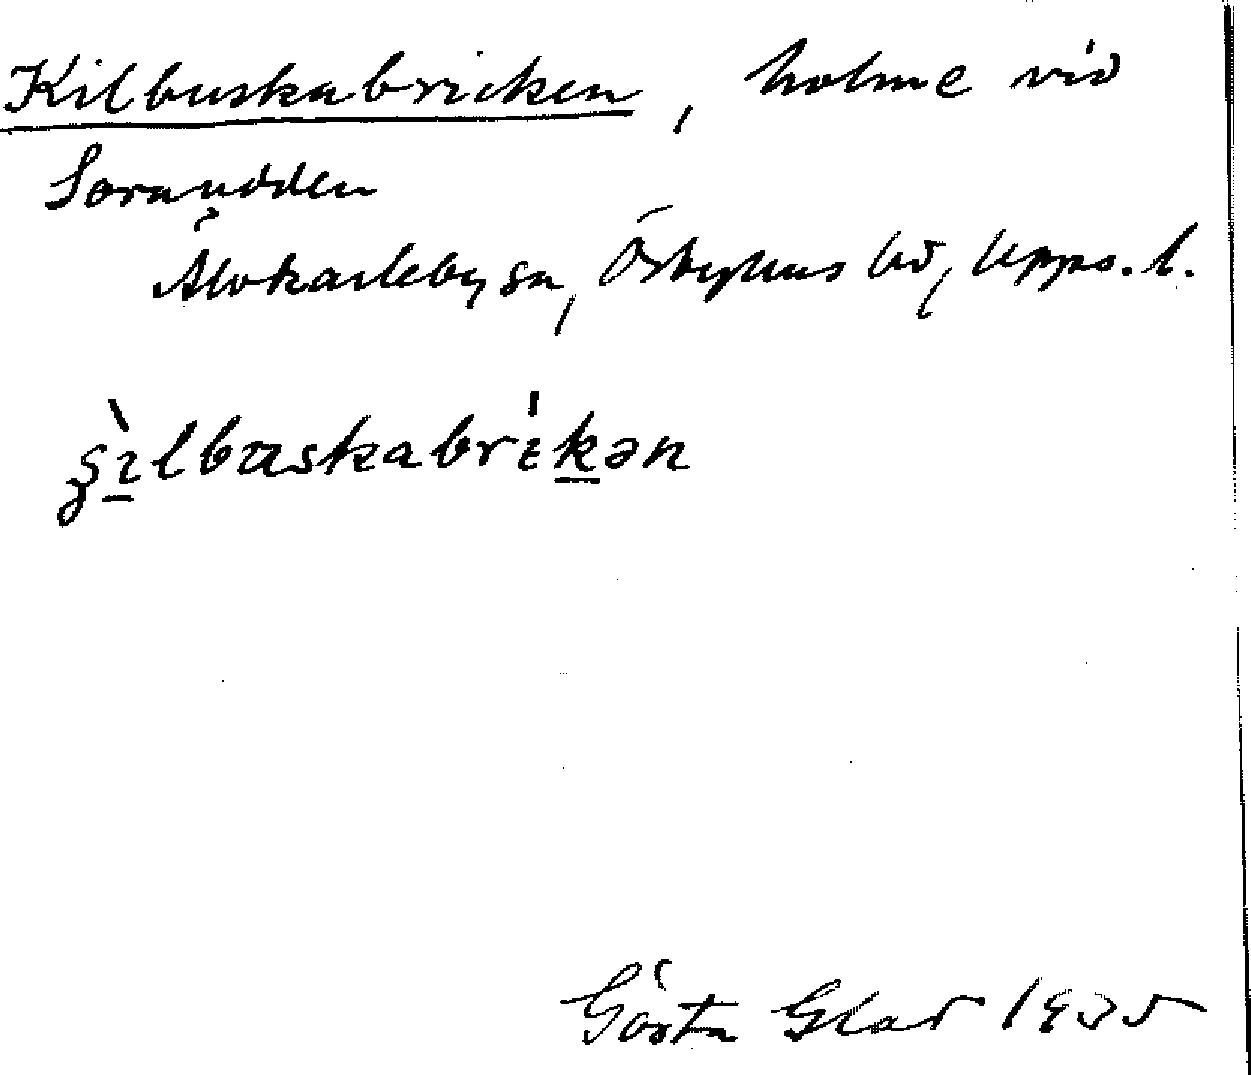 Kilbuskabricken, holme vid
Sornudden
Älvkarleby sn, Örbyhus hd, Upps. l.
ʂìlbuskabrɩ́kən
Gösta Glad 1935